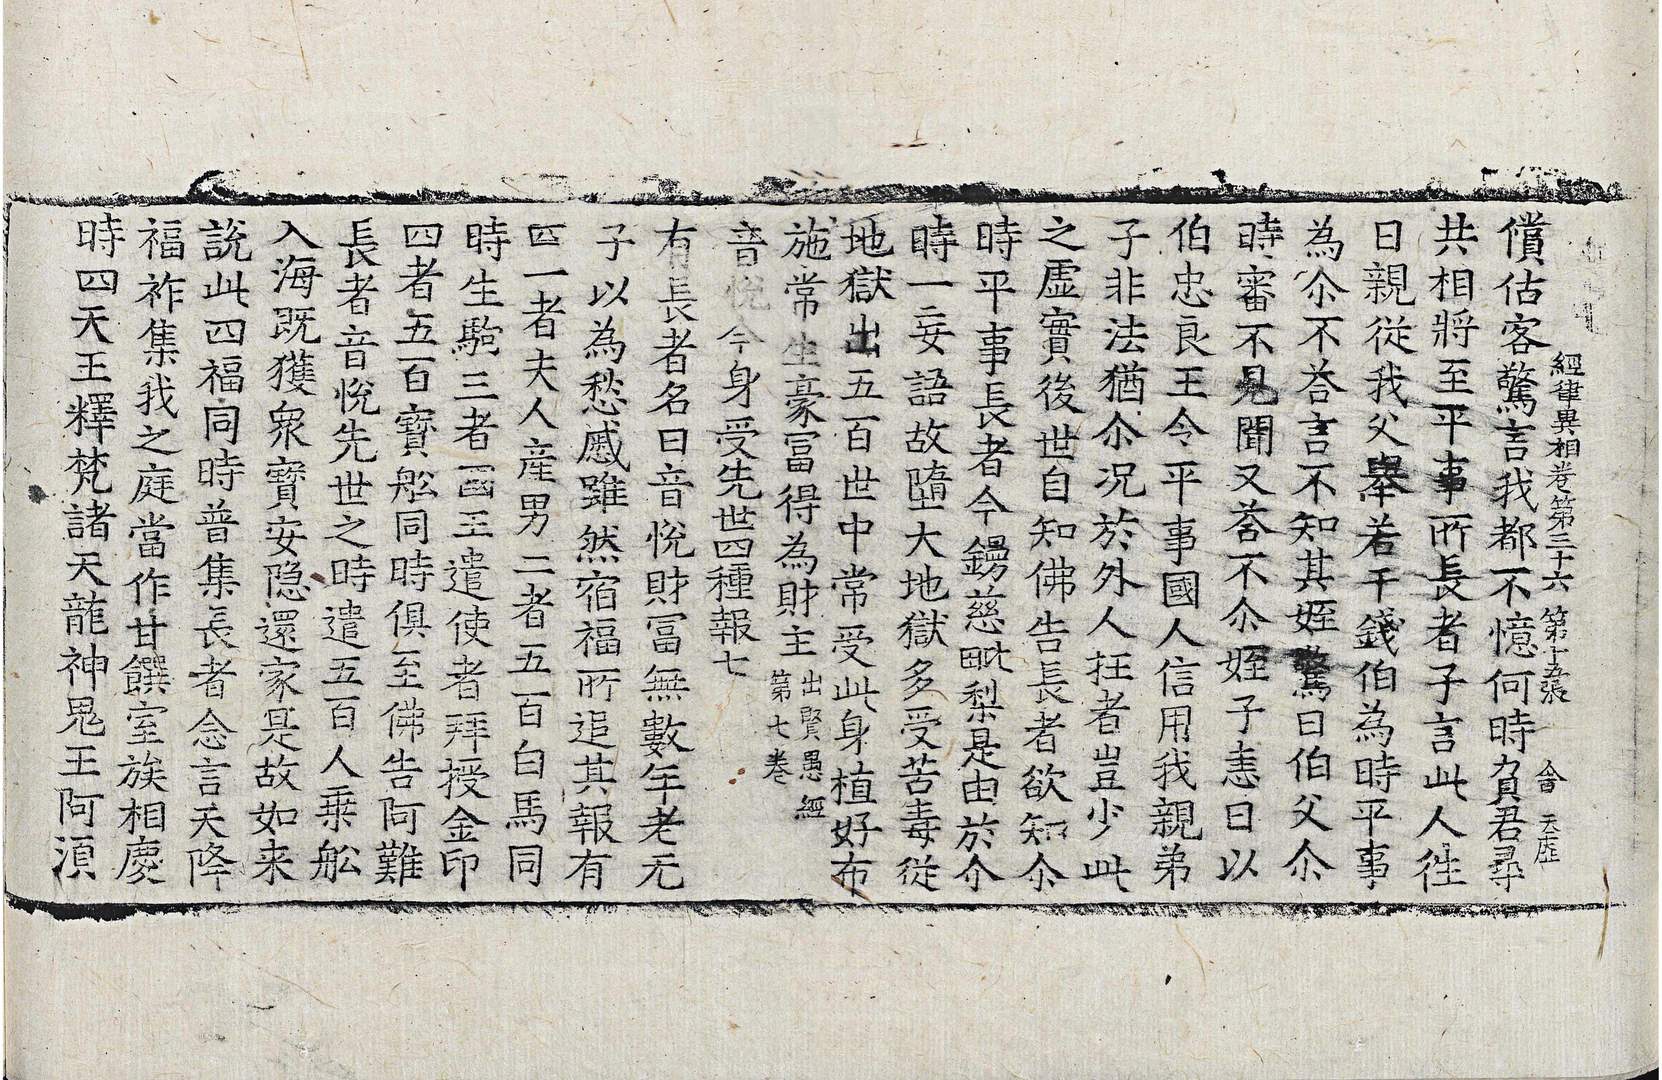 經律異相卷第三十六 第十五張 會 天歷
償估客驚言我都不憶何時負君尋
共相將至平事所長者子言此人徃
日親從我父舉若干錢伯為時平事
為尒不荅言不知其姪驚曰伯父尒
時審不見聞又荅不尒姪子恚曰以
伯忠良王令平事國人信用我親弟
子非法猶尒况於外人抂者豈少此
之虛實後世自知佛告長者欲知尒
時平事長者今鏝慈毗梨是由於尒
時一妄語故墮大地獄多受苦毒從
地獄出五百世中常受此身植好布
施常生豪冨得為財主 出賢愚經第七卷
音悅今身受先世四種報七
有長者名曰音悅財冨無數年老无
子以為愁慼雖然宿福所追其報有
四一者夫人産男二者五百白馬同
時生駒三者國王遣使者拜授金印
四者五百寶舩同時俱至佛告阿難
長者音悅先世之時遣五百人乗舩
入海既獲衆寶安隐還家是故如来
說此四福同時普集長者念言天降
福祚集我之庭當作甘饌室族相慶
時四天王釋梵諸天龍神鬼王阿湏